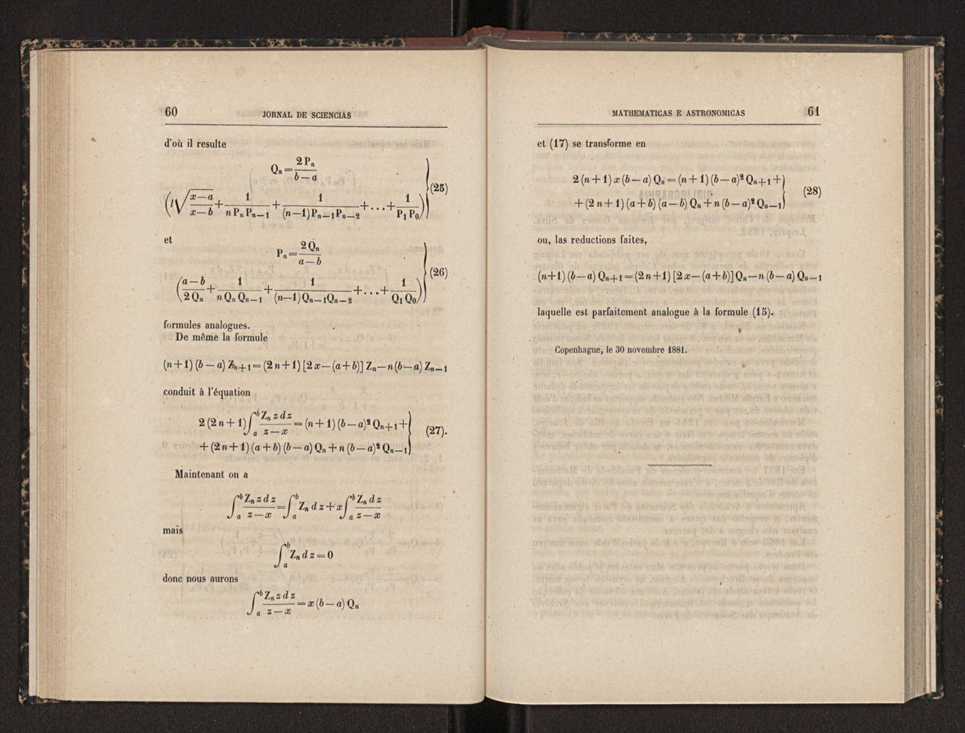 60 JORNAL DE SCIENCIAS
d'où il resulte
Qₙ = 2 Pₙ / (b — a)
(l √((x—a)/(x—b)) + 1/(n Pₙ Pₙ₋₁) + 1/((n—1) Pₙ₋₁ Pₙ₋₂) + . . . + 1/(P₁ P₀)) } (25)
et
Pₙ = 2 Qₙ / (a — b)
((a—b)/(2 Qₙ) + 1/(n Qₙ Qₙ₋₁) + 1/((n—1) Qₙ₋₁ Qₙ₋₂) + . . . + 1/(Q₁ Q₀)) } (26)
formules analogues.
De même la formule
(n+1) (b — a) Zₙ₊₁ = (2 n + 1) [2 x — (a+b)] Zₙ — n (b — a) Zₙ₋₁
conduit à l'équation
2 (2 n + 1) ∫ₐᵇ Zₙ z d z / (z — x) = (n + 1) (b — a)² Qₙ₊₁ +
+ (2 n + 1) (a + b) (b — a) Qₙ + n (b — a)² Qₙ₋₁ } (27).
Maintenant on a
∫ₐᵇ Zₙ z d z / (z — x) = ∫ₐᵇ Zₙ d z + x ∫ₐᵇ Zₙ d z / (z — x)
mais
∫ₐᵇ Zₙ d z = 0
donc nous aurons
∫ₐᵇ Zₙ z d z / (z — x) = x (b — a) Qₙ
MATHEMATICAS E ASTRONOMICAS 61
et (17) se transforme en
2 (n + 1) x (b — a) Qₙ = (n + 1) (b — a)² Qₙ₊₁ +
+ (2 n + 1) (a + b) (a — b) Qₙ + n (b — a)² Qₙ₋₁ } (28)
ou, las reductions faites,
(n+1) (b — a) Qₙ₊₁ = (2 n + 1) [2 x — (a+b)] Qₙ — n (b — a) Qₙ₋₁
laquelle est parfaitement analogue à la formule (15).
Copenhague, le 30 novembre 1881.